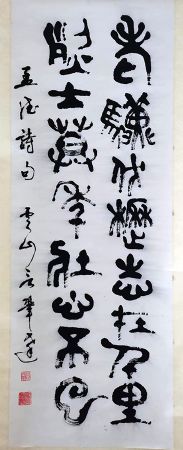 老驥伏櫪志在千里
烈士暮年壯心不已
孟德詩句 雲山